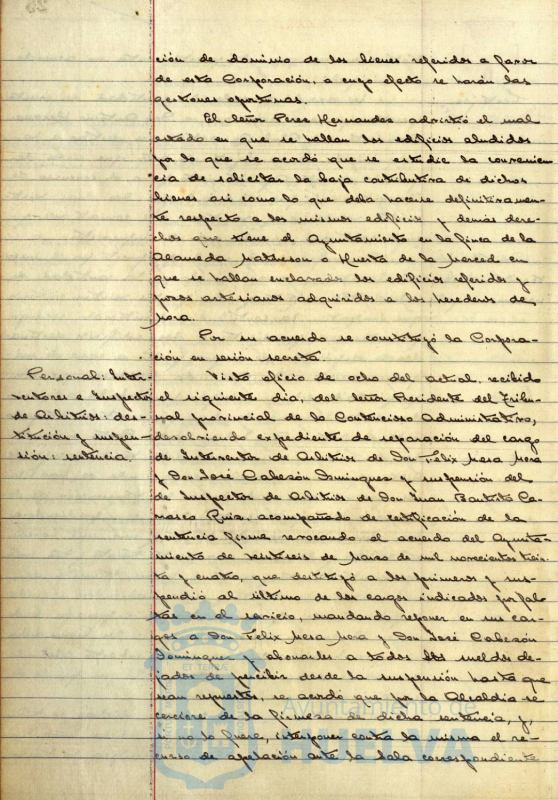 ción de dominio de los bienes referidos a favor
de esta Corporación, a cuyo efecto se harán las
gestiones oportunas.
El Señor Perez Hernandez advirtió el mal
estado en que se hallan los edificios aludidos
por lo que se acordó que se estudie la convenien-
cia de solicitar la baja contributiva de dichos
bienes asi como lo que deba hacerse definitivamen-
te respecto a los mismos edificios y demás dere-
chos que tiene el Ayuntamiento en la finca de la
Alameda Matheson o Huerta de la Merced en
que se hallan enclavados los edificios referidos y
pozos artesianos adquiridos a los herederos de
Mora.
Por su acuerdo se constituyó la Corpora-
ción en sesión secreta.
Personal: Inter-
ventores e Inspector
de Arbitrios: des-
titución y suspen-
sión: sentencia.
Visto oficio de ocho del actual, recibido
el siguiente dia, del Señor Presidente del Tribu-
nal provincial de lo Contencioso Administrativo,
devolviendo expediente de separación del cargo
de Interventor de Arbitrios de Don Félix Mesa Mora
y Don José Cabezón Dominguez y suspensión del
de Inspector de Arbitrios de Don Juan Bautista Ca-
rrasco Ruiz, acompañado de certificación de la
sentencia firme revocando el acuerdo del Ayunta-
miento de veintiseis de Marzo de mil novecientos trein-
ta y cuatro, que destituyó a los primeros y sus-
pendió al último de los cargos indicados por fal-
tas en el servicio, mandando reponer en sus car-
gos a Don Felix Mesa Mora y Don José Cabezón
Dominguez y abonarles a todos los sueldos de-
jados de percibir desde la suspensión hasta que
sean repuestos, se acordó que por la Alcaldia se
cerciore de la firmeza de dicha sentencia, y,
si no lo fuere, interponer contra la misma el re-
curso de apelación ante la Sala correspondiente
Ayuntamiento de
HUELVA